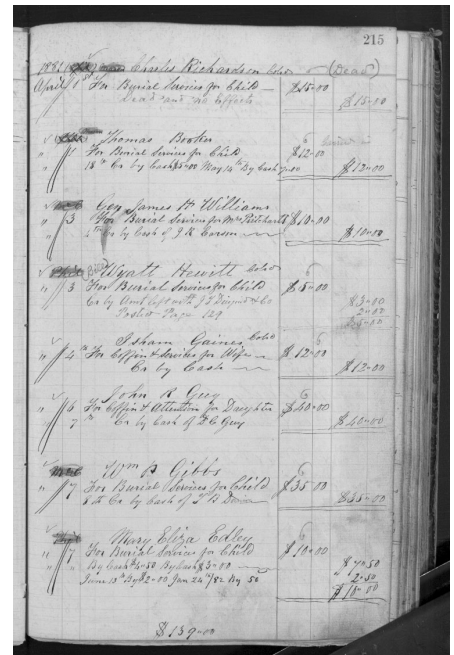 215
1881 Charles Richardson Cold (Dead)
April 1st For Burial Services for Child — $15-00
Dead and no Effects $15-00
Thomas Booker
" 1 For Burial Services for Child $12-00
18th Cr by Cash $5-00 May 14th By Cash 7-00 $12-00
Gen James H Williams
" 3 For Burial Services for Mrs Pritchard $10-00
Cr by Cash of J R $10-00
Wyatt Hewitt Cold
" 3 For Burial Services for Child $5-00
Cr by Amt left with & Co $3-00
Page 129 2-00
$5-00
Isham Gaines Cold
" 4th For Coffin & Services for Wife $12-00
Cr by Cash $12-00
John R Guy
" 6 For Coffin & Attention for Daughter $40-00
7th Cr by Cash of D C Guy $40-00
Wm P Gibbs
" 7 For Burial Services for Child $35-00
8th Cr by Cash of $35-00
Mary Eliza Edley
" 7 For Burial Services for Child $10-00
By Cash $4-50 By Cash $3-00 $7-50
June 13th By $2-00 Jan 24th/82 By 50 " 2-50
$10-00
$139-00